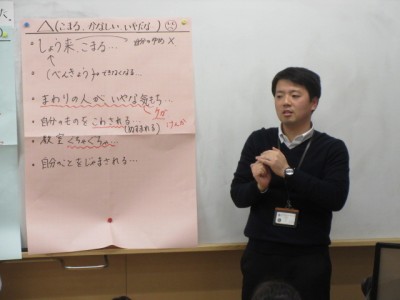 △(こまる、かなしい、いやだな。)
・しょう来、こまる… 自分のゆめ ×
↑
・(べんきょう)ができなくなる…
・まわりの人が、いやな気もち…
ケガ けんか
・自分のものをこわされる…
(ぬすまれる)
・教室ぐちゃぐちゃ
・自分のことをじゃまされる…